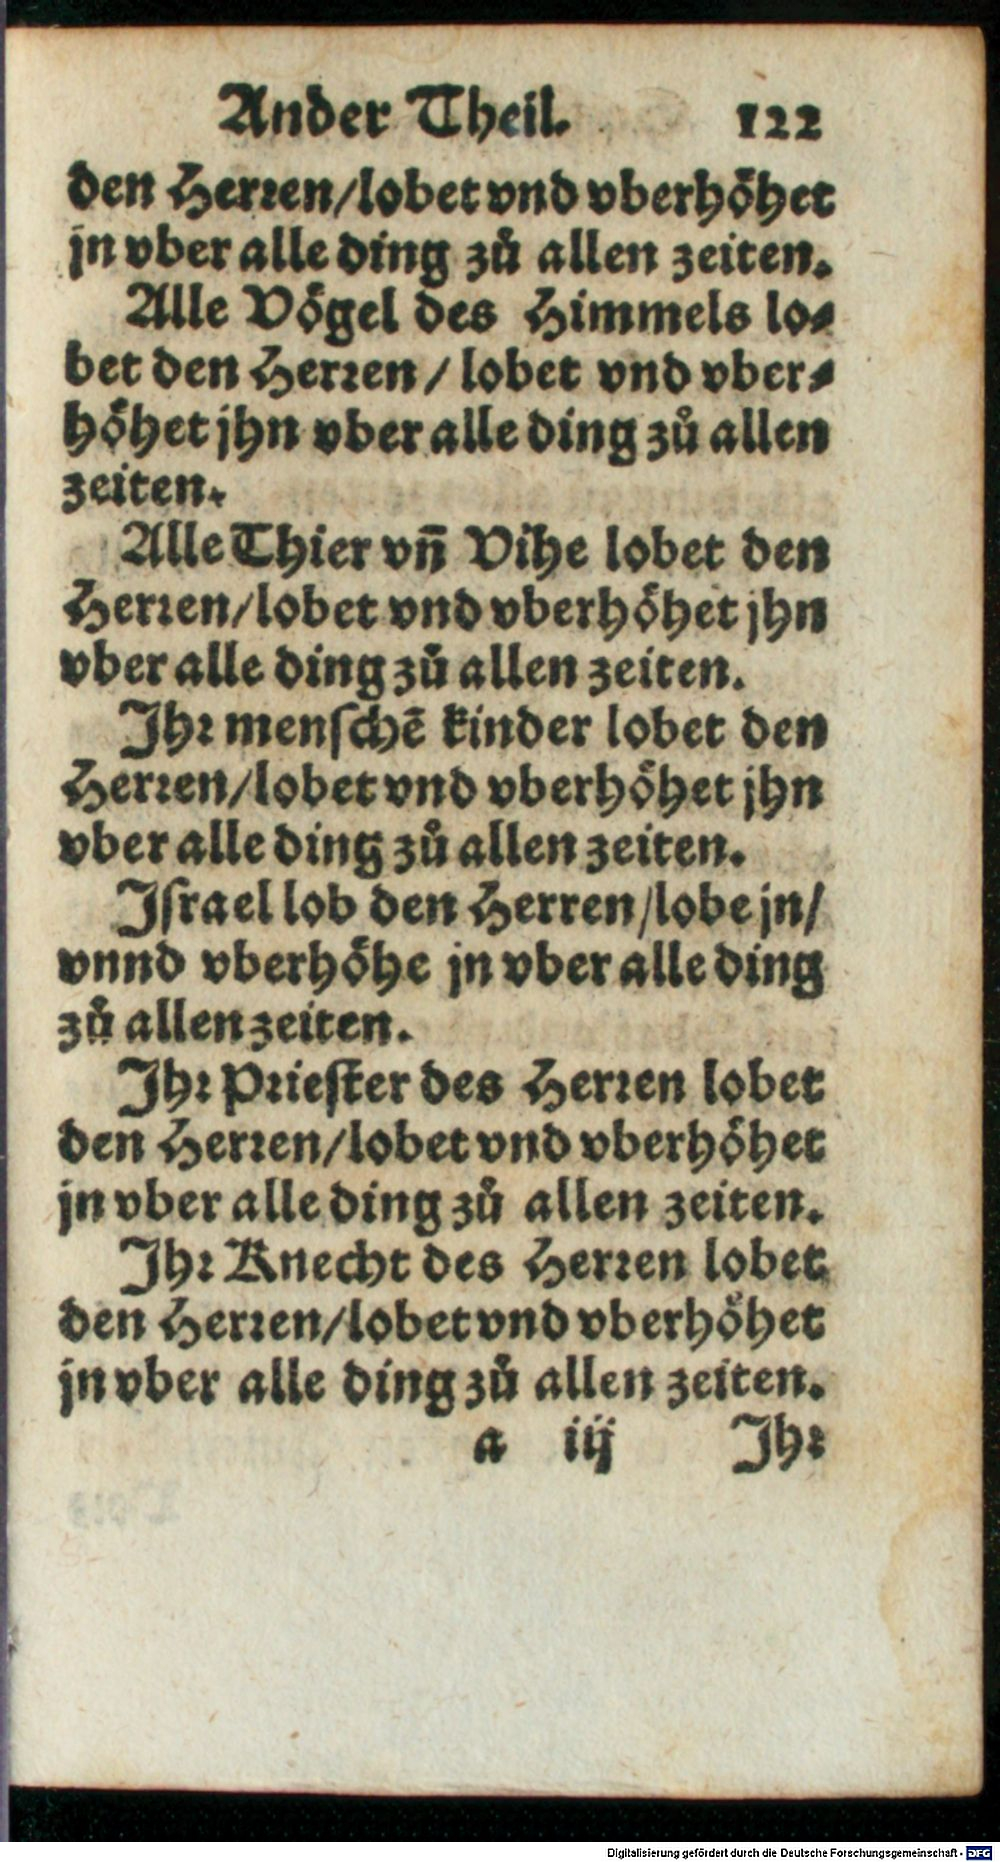 Ander Theil. 122
den Herren/lobet vnd vberhoͤhet
jn vber alle ding zů allen zeiten.
Alle Voͤgel des Himmels lo⸗
bet den Herren / lobet vnd vber⸗
hoͤhet jhn vber alle ding zů allen
zeiten.
Alle Thier vñ Vihe lobet den
Herren/lobet vnd vberhoͤhet jhn
vber alle ding zů allen zeiten.
Ihr menschē kinder lobet den
Herren/lobet vnd vberhoͤhet jhn
vber alle ding zů allen zeiten.
Israel lob den Herren/lobe jn/
vnnd vberhoͤhe jn vber alle ding
zů allen zeiten.
Ihr Priester des Herren lobet
den Herren/lobet vnd vberhoͤhet
jn vber alle ding zů allen zeiten.
Ihr Knecht des Herren lobet
den Herren/lobet vnd vberhoͤhet
jn vber alle ding zů allen zeiten.
a iij Ihr
Digitalisierung gefördert durch die Deutsche Forschungsgemeinschaft - DFG